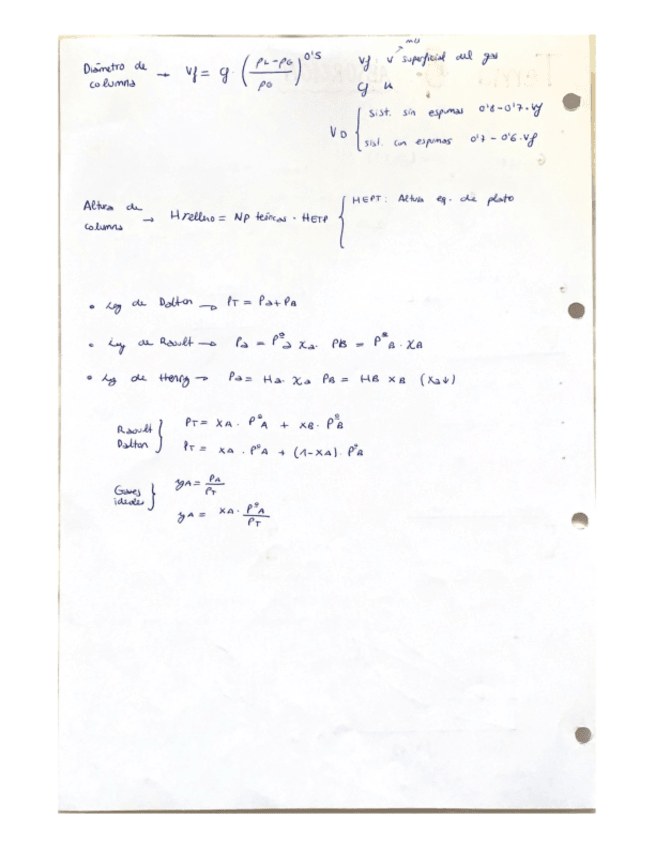 Diámetro de
columna → Vf = g · (ρL - ρG / ρG)^0'5
máx
Vf v superficial del gas
g K
VD { Sist. sin espumas 0'8 - 0'7 · Vf
sist. con espumas 0'7 - 0'6 · Vf
Altura de
columna → Hrelleno = NP teóricos · HETP { HEPT: Altura eq. de plato
• Ley de Dalton → PT = Pa + PB
• Ley de Raoult → Pa = Pºa Xa · PB = PºB · XB
• Ley de Henry → Pa = Ha · Xa PB = HB XB (Xa↓)
Raoult
Dalton } PT = XA · PºA + XB · PºB
PT = XA · PºA + (1-XA) · PºB
Gases
ideales } yA = PA / PT
yA = XA · PºA / PT